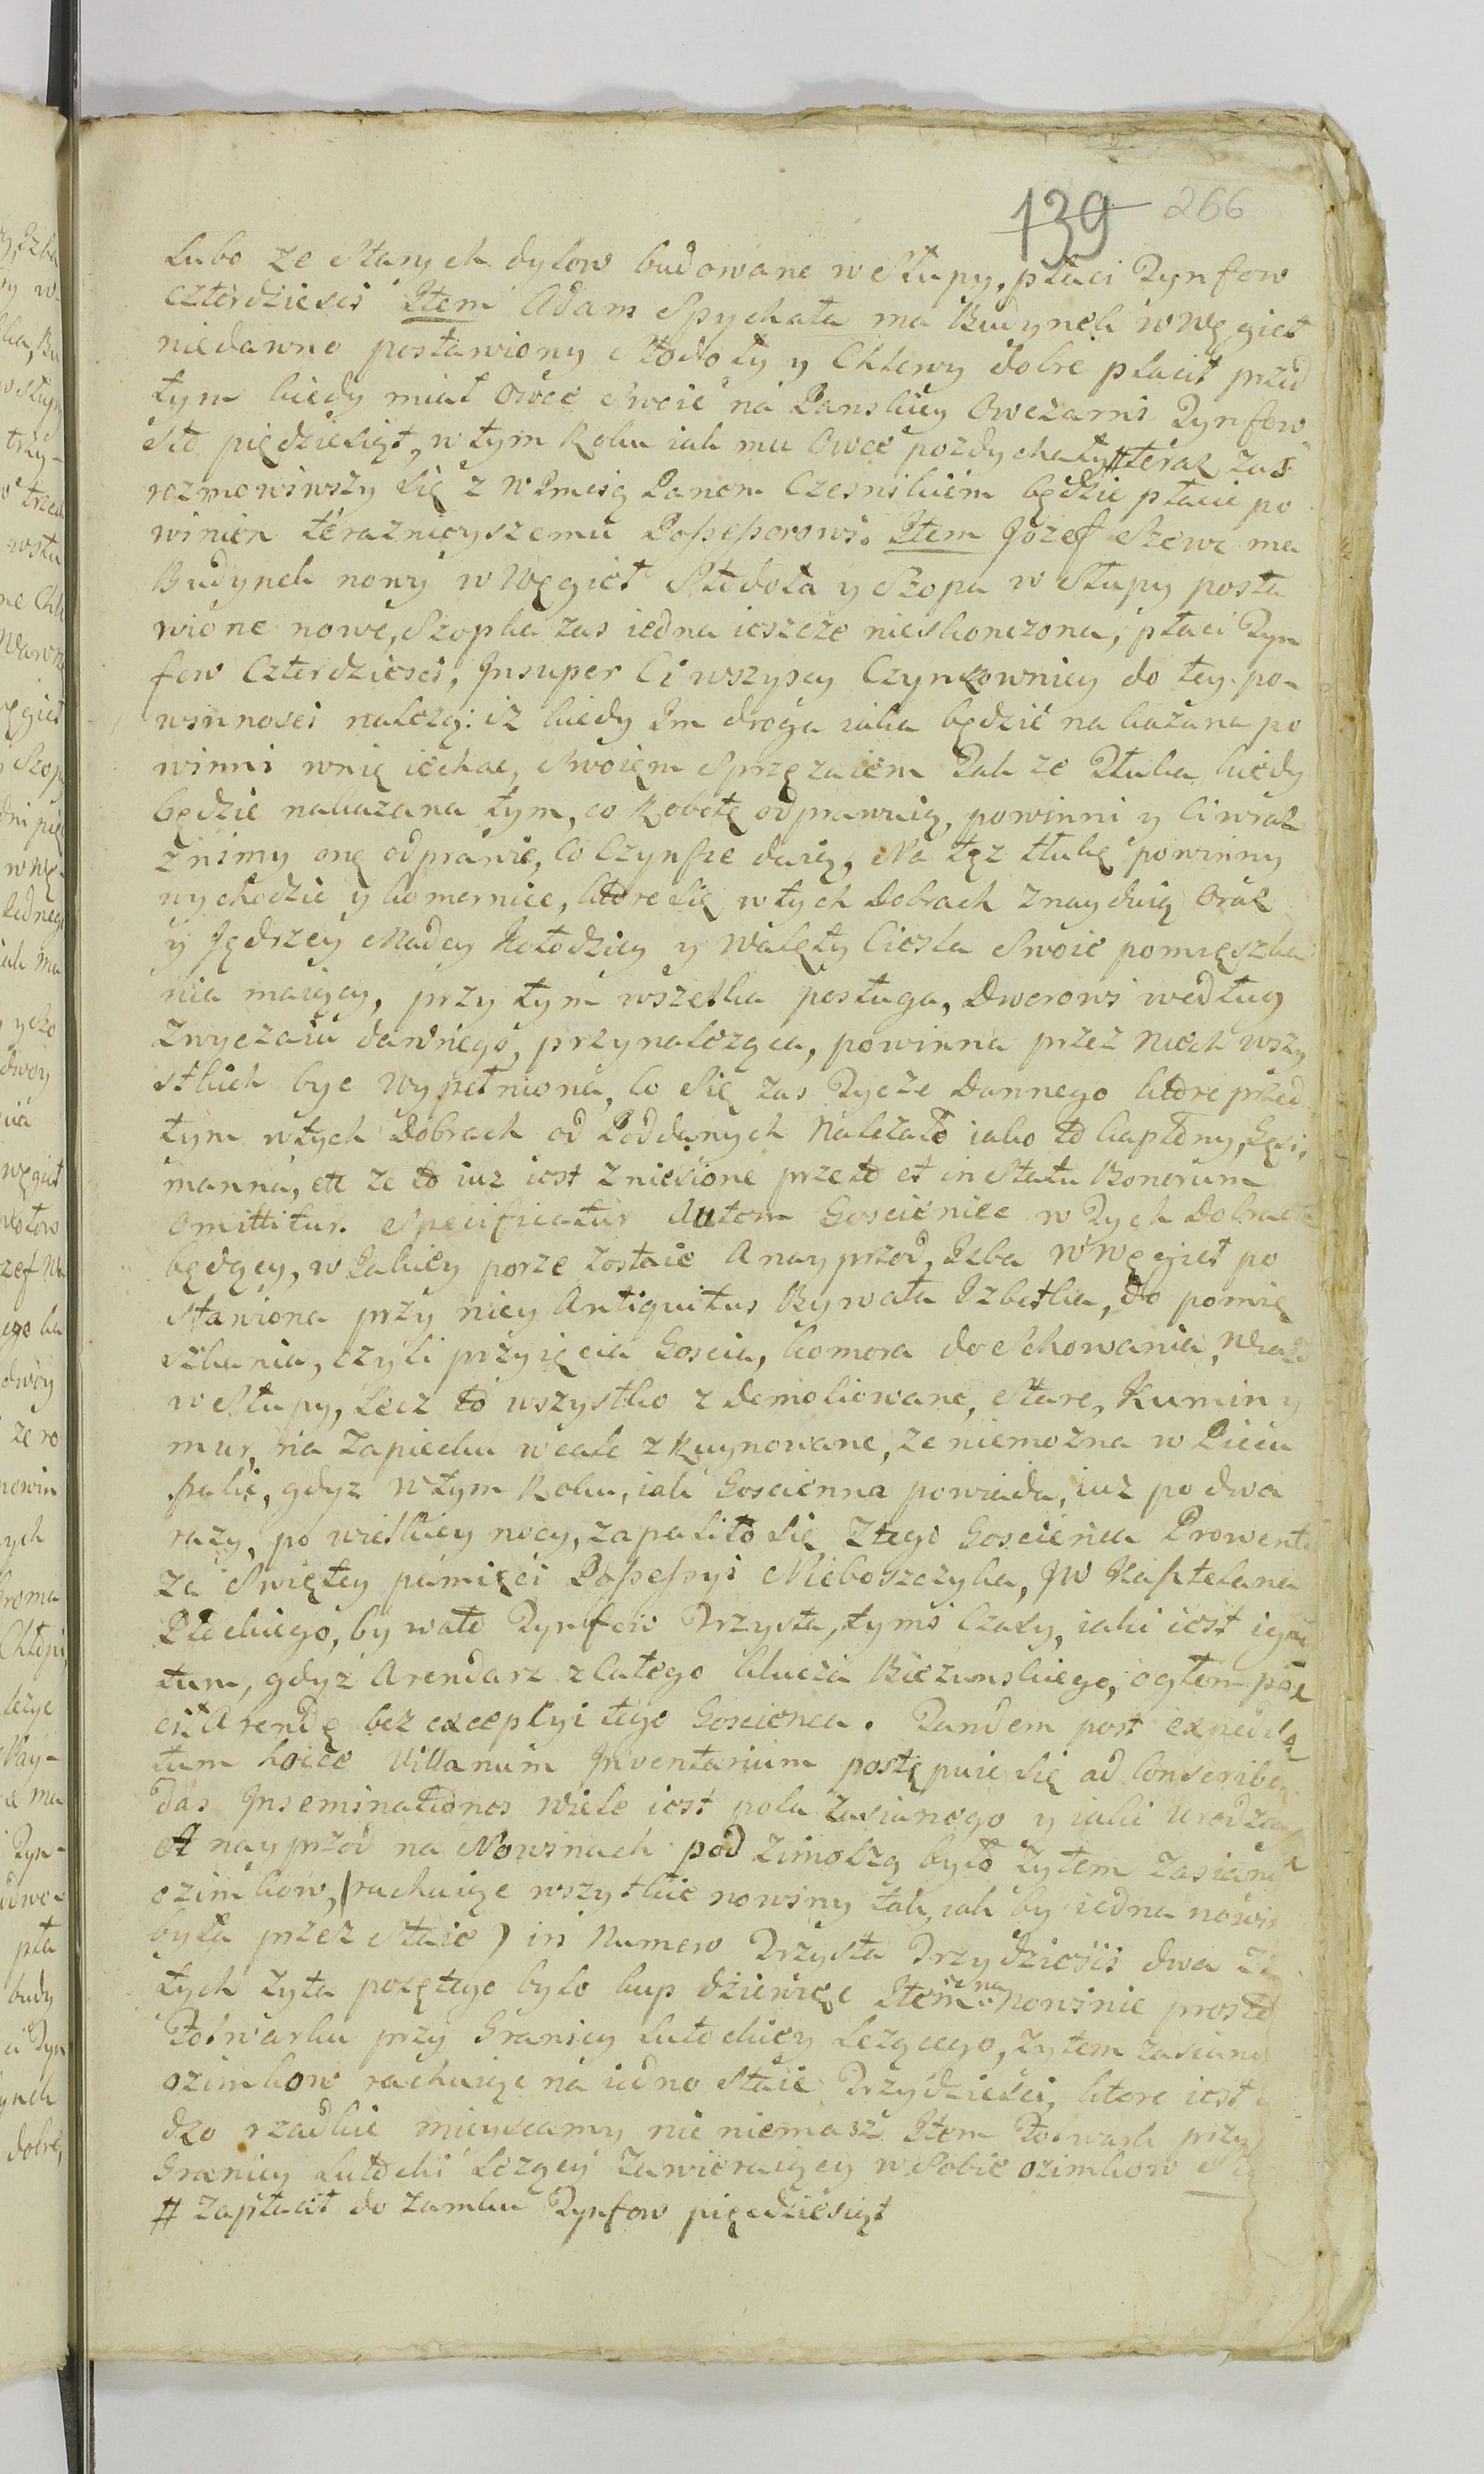 139 266
Lubo ze Starych dylow budowane w Słupy, płaci Tynfow
czterdziesci Item Adam Spychała ma Budynek w Węgieł
niedawno postawiony Stodoły y Chlewy dobre płacił przed
tym kiedy miał owce Swoie na Panskiey Owczarni Tynfow
Sto pięcdziesiąt, w tym Roku iak mu Owce pozdychały # teraz zas
rozmowiwszy się z WImcią Panem Czesnikiem będzie płacic po
winien teraznieyszemu Possessorowi. Item Jozef Szewc ma
Budynek nowy w Węgieł Stodoła y Szopa w Słupy posta
wione nowe, Szopka zas iedna ieszcze nieskonczona, płaci Tyn
fow Czterdziesci, Insuper Ci wszyscy Czynszownicy do tey po-
winnosci należą: iż kiedy Im droga iaka będzie nakazana po
winni w nię iechac, Swoiem Sprzęzaiem Tak ze Tłuka kiedy
będzie nakazana tym, co Robotę odprawuią, powinni y Ci wraz
z nimy onę odprawic, Co Czynsze daią, Na tęz tłukę powinny
wychodzic y komornice, ktore się w tych Dobrach znayduią Oraz
y Jędrzey Maday Kołodziey y Walęty Ciesla Swoie pomięszka
nia maiący, przy tym wszelka posługa, Dworowi według
Zwyczaiu dawnego, przynaleząca, powinna przez nich wszy
stkich byc wypełniona, Co Się zas Tycze Dannego ktore przed
tym w tych Dobrach od Poddanych Nalezało iako to kapłony, Gęsi,
manna, etc ze to iuz iest zniesione przeto et in Statu Bonorum
omittitur. Specificatur Autem Gosciniec w Tych Dobrach
będący, w Jakiey porze zostaie A nayprzod, Izba w Węgieł po
stawiona przy niey Antiquitus Bywała Izbetka, do pomię
szkania, czyli przyięcia Goscia, komora do Schowania,
w Słupy, Lecz to wszystko zdemoliowane, Stare, Kumin y
mur na Zapiecku wcale zRuynowane, ze niemozna w Piecu
palic, gdyz w tym Roku, iak Goscienna powiada, iuz po dwa
razy, po wielkiey nocy, zapaliło się Z tego Goscienca Prowentu
za Swiętey pamięci Possessyi Nieboszczyka, JW Kasztelana
Płockiego, bywało Tynfow Trzysta, tymi Czasy, iaki iest igno
tum, gdyz Arendarz z całego klucza Biezunskiego, ogłem pła
cił Arendę bez exceplyi tego Goscienca. Tandem post expedita
tum hocce Villanum Inventarium postępuie się ad Conscriben
das Inseminationes wiele iest pola Zasianego y iaki Urodzay
A nayprzod na Nowinach pod Zimolzą było Zytem Zasiane
ozimkow, (rachuiąc wszytkie nowiny tak, iak by iedna nowin
była przez Staie) in Numero Trzysta Trzydziesci dwa Z
tych zyta pozętego było kup dziewięc Item na nowinie prosto
Folwarku przy Granicy Lutockiey Lezącego, Zytem zasiane
ozimkow rachuiąc na iedno Staie Trzydziesci, ktore iest
dzo rzadkie mieyscamy nic niemasz Item Folwark przy
Granicy Lutocki Lezący Zawieraiący w Sobie ozimkow
# zapłacił do Zamku Tynfow pięcdziesiąt